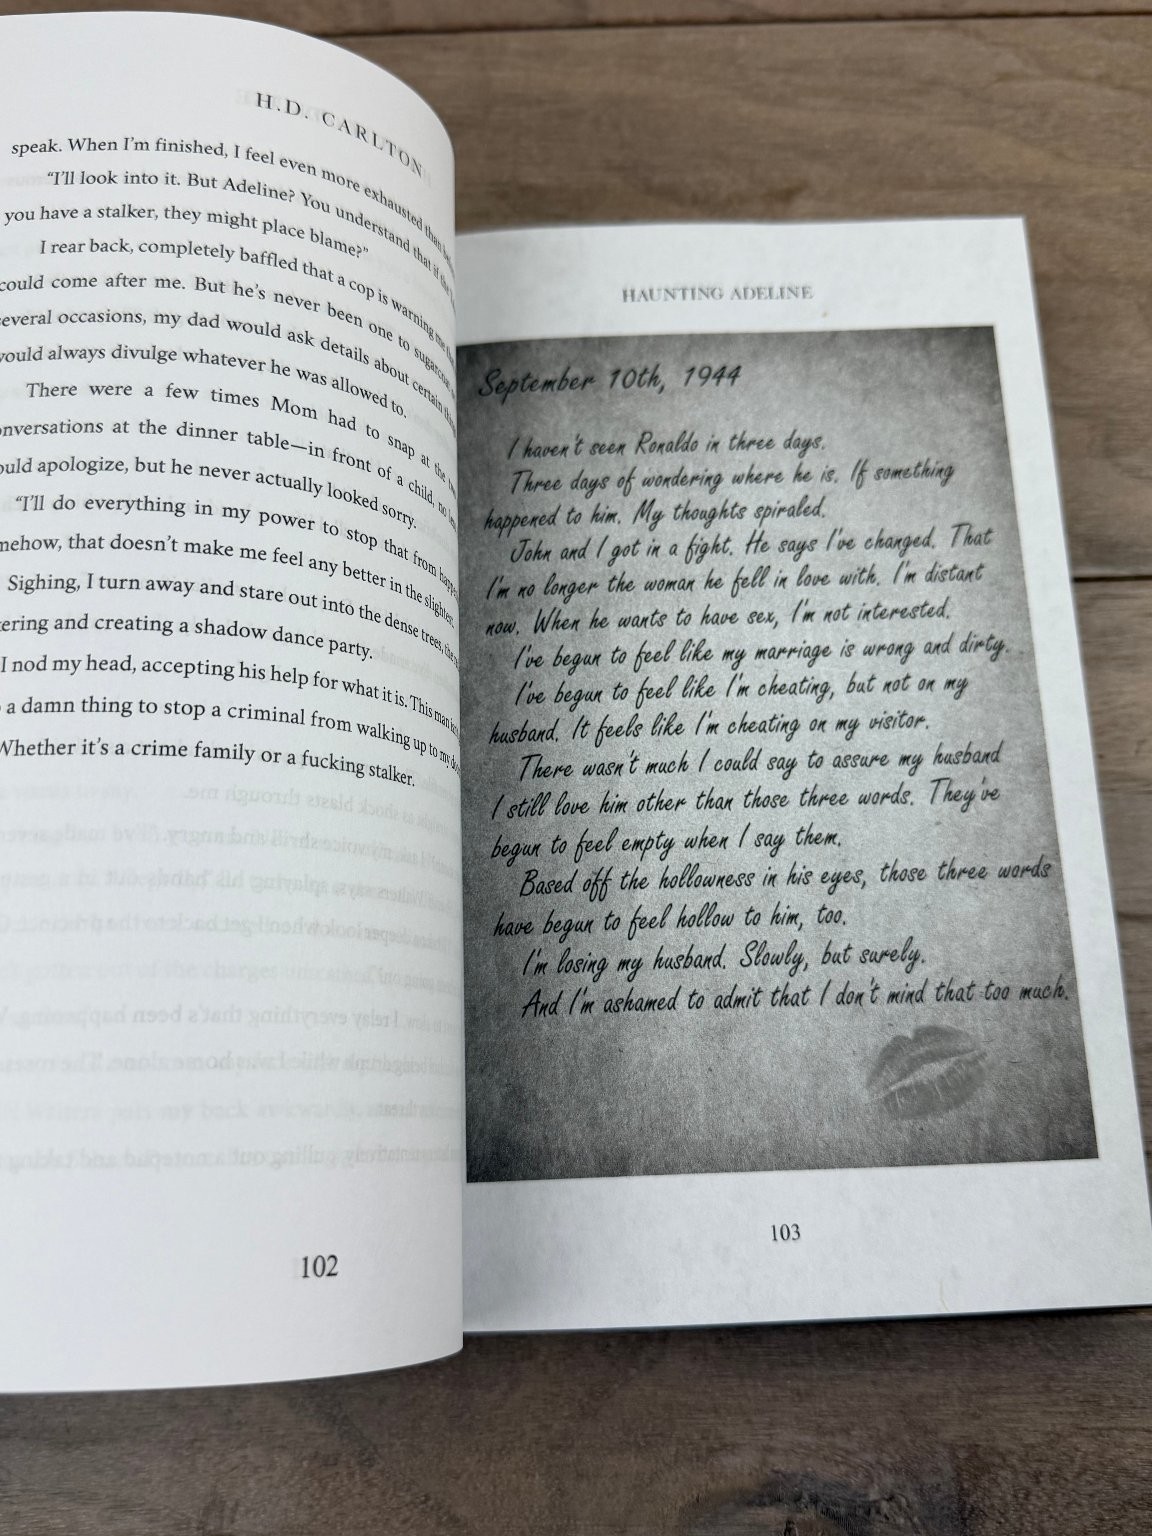 H.D. CARLTON
speak. When I'm finished, I feel even more exhausted than
"I'll look into it. But Adeline? You understand that if the
you have a stalker, they might place blame?"
I rear back, completely baffled that a cop is warning me
could come after me. But he's never been one to sugarcoat
several occasions, my dad would ask details about certain
would always divulge whatever he was allowed to.
There were a few times Mom had to snap at the
conversations at the dinner table—in front of a child, no
would apologize, but he never actually looked sorry.
"I'll do everything in my power to stop that from
mehow, that doesn't make me feel any better in the slightest.
Sighing, I turn away and stare out into the dense trees, the
tering and creating a shadow dance party.
I nod my head, accepting his help for what it is. This man
a damn thing to stop a criminal from walking up to my
Whether it's a crime family or a fucking stalker.
102
HAUNTING ADELINE
September 10th, 1944
I haven't seen Ronaldo in three days.
Three days of wondering where he is. If something
happened to him. My thoughts spiraled.
John and I got in a fight. He says I've changed. That
I'm no longer the woman he fell in love with. I'm distant
now. When he wants to have sex, I'm not interested.
I've begun to feel like my marriage is wrong and dirty.
I've begun to feel like I'm cheating, but not on my
husband. It feels like I'm cheating on my visitor.
There wasn't much I could say to assure my husband
I still love him other than those three words. They've
begun to feel empty when I say them.
Based off the hollowness in his eyes, those three words
have begun to feel hollow to him, too.
I'm losing my husband. Slowly, but surely.
And I'm ashamed to admit that I don't mind that too much.
103